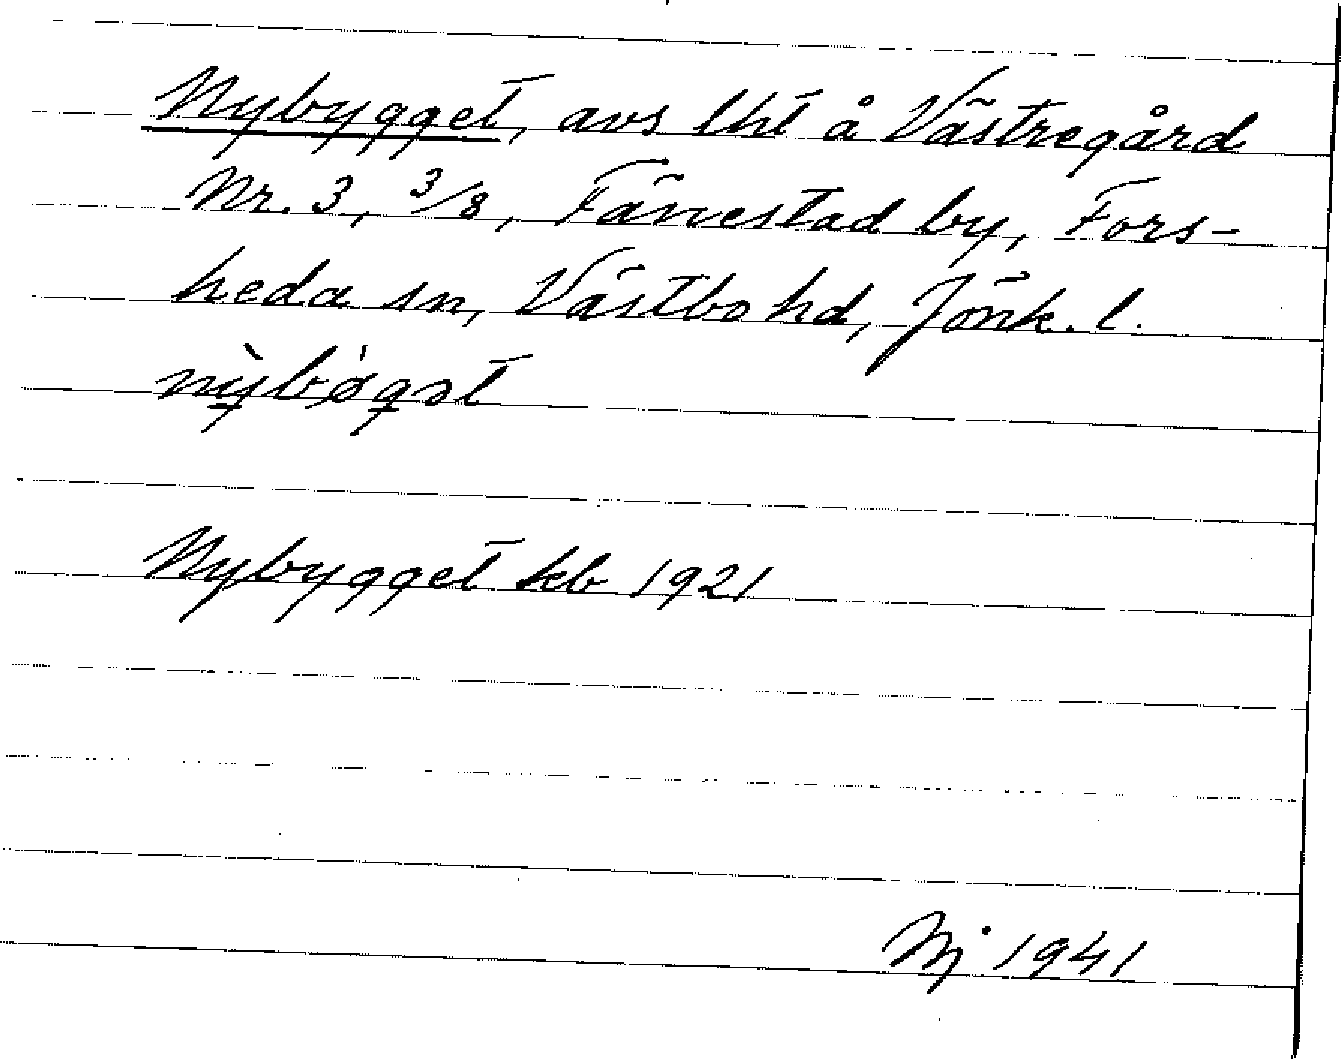 Nybygget, avs lht å Västregård
Nr. 3, 3/8, Fänestad by, Fors-
heda sn, Västbo hd, Jönk. l.
nỳbøgət
Nybygget kb 1921
Nj 1941